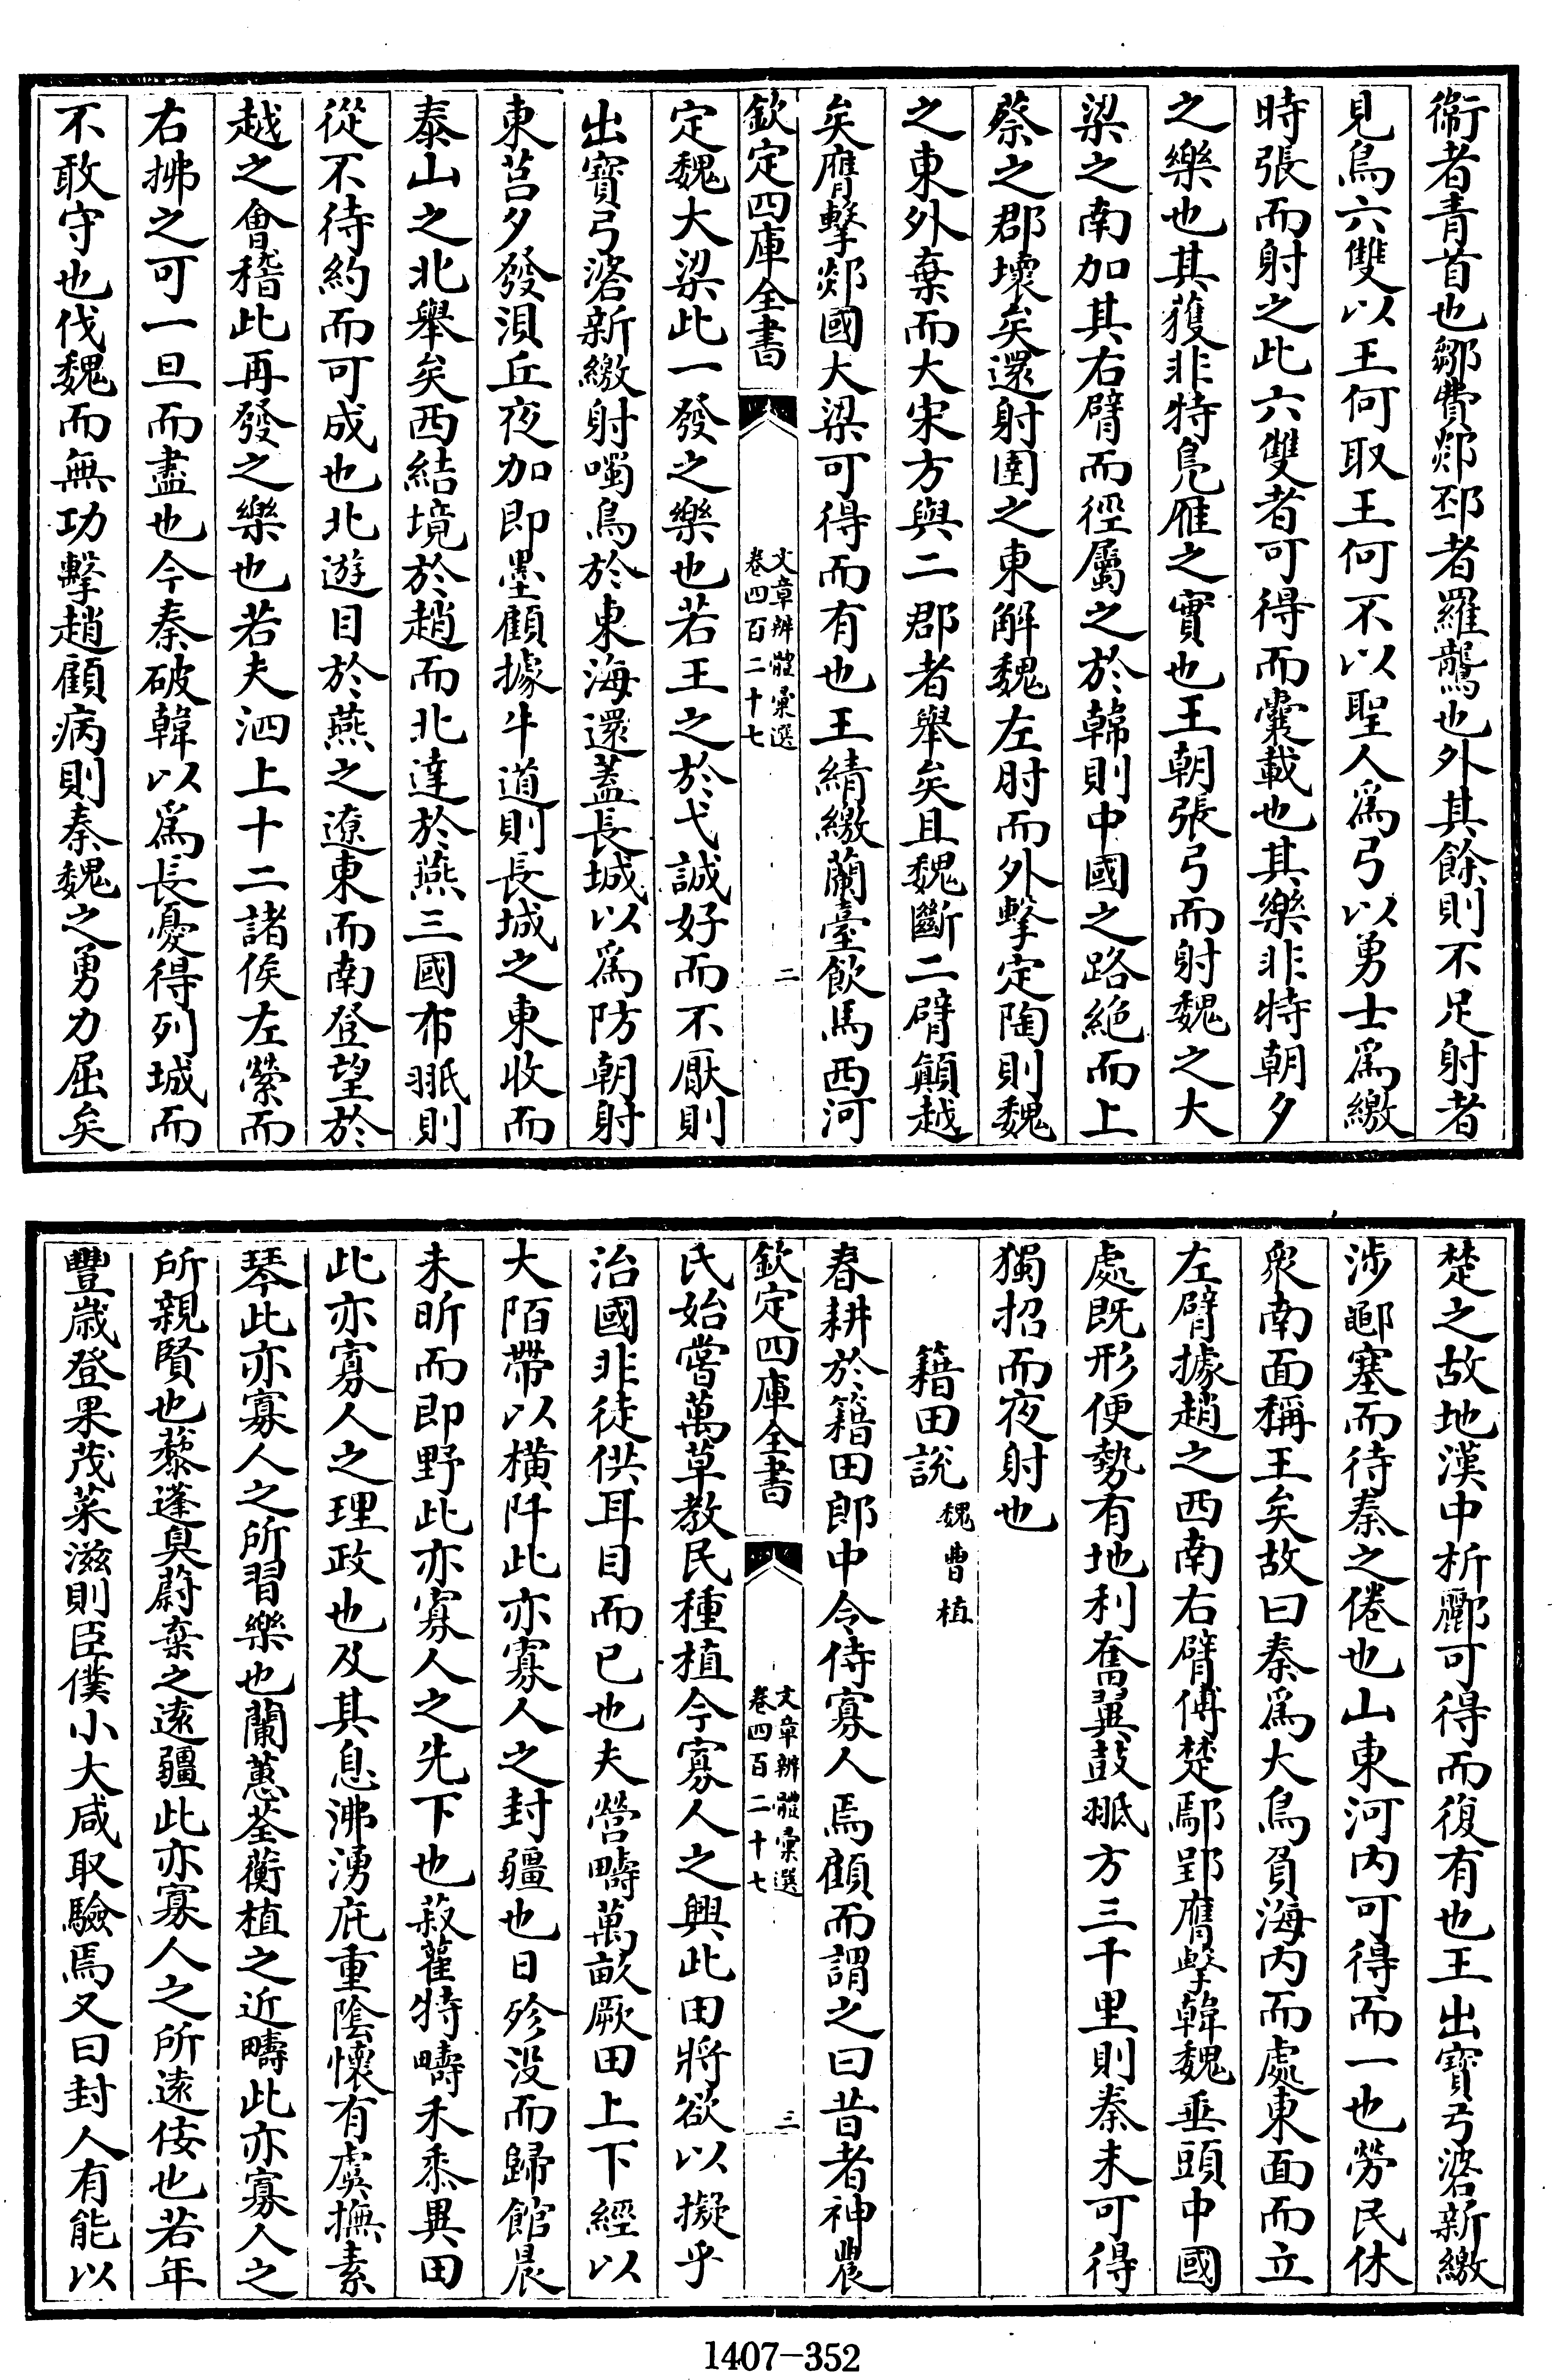 衞者青首也鄒費郯邳者羅鸗也外其餘則不足射者
見鳥六雙以王何取王何不以聖人爲弓以勇士爲繳
時張而射之此六雙者可得而囊載也其樂非特朝夕
之樂也其獲非特鳧雁之實也王朝張弓而射魏之大
梁之南加其右臂而徑屬之於韓則中國之路絶而上
蔡之郡壞矣還射圉之東解魏左肘而外擊定陶則魏
之東外棄而大宋方與二郡者舉矣且魏斷二臂顚越
矣膺擊郯國大梁可得而有也王綪繳蘭臺飲馬西河
欽定四庫全書
文章辨體彙選
卷四百二十七
二
定魏大梁此一發之樂也若王之於弋誠好而不厭則
出寶弓碆新繳射噣鳥於東海還蓋長城以爲防朝射
東莒夕發浿丘夜加即墨顧據牛道則長城之東收而
泰山之北舉矣西結境於趙而北達於燕三國布𦐂則
從不待約而可成也北遊目於燕之遼東而南登望於
越之會稽此再發之樂也若夫泗上十二諸侯左縈而
右拂之可一旦而盡也今秦破韓以爲長憂得列城而
不敢守也伐魏而無功擊趙顧病則秦魏之勇力屈矣
楚之故地漢中析酈可得而復有也王出寶弓碆新繳
涉鄳塞而待秦之倦也山東河内可得而一也勞民休
衆南面稱王矣故曰秦爲大鳥負海内而處東面而立
左臂據趙之西南右臂傅楚鄢郢膺擊韓魏垂頭中國
處既形便勢有地利奮翼鼓𦐂方三千里則秦未可得
獨招而夜射也
籍田説 魏 曹植
春耕於籍田郎中令侍寡人焉顧而謂之曰昔者神農
欽定四庫全書
文章辨體彙選
卷四百二十七
三
氏始嘗萬草教民種植今寡人之興此田將欲以擬乎
治國非徒供耳目而已也夫營疇萬畝厥田上下經以
大陌帶以橫阡此亦寡人之封疆也日殄没而歸館晨
未昕而即野此亦寡人之先下也菽藿特疇禾黍異田
此亦寡人之理政也及其息沸湧庇重陰懷有虞撫素
琴此亦寡人之所習樂也蘭蕙荃蘅植之近疇此亦寡人之
所親賢也藜蓬臭蔚棄之遠疆此亦寡人之所遠佞也若年
豐歳登果茂菜滋則臣僕小大咸取驗焉又曰封人有能以
1407-352